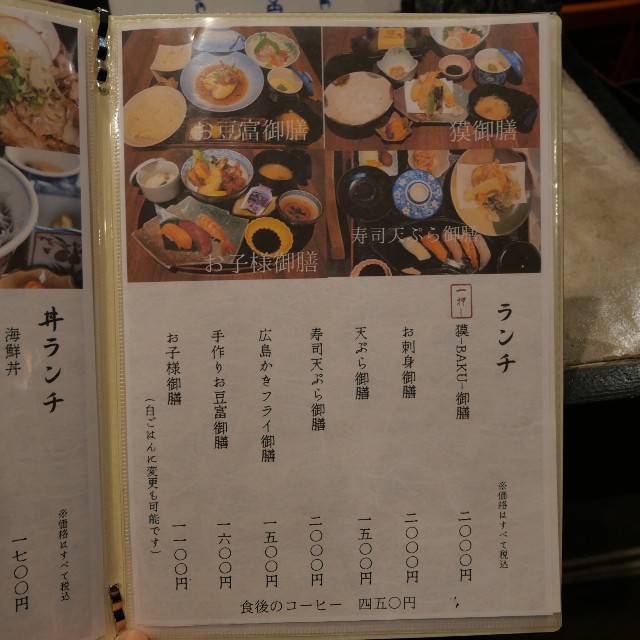 お豆富御膳
獏御膳
お子様御膳
寿司天ぷら御膳
ランチ
※価格はすべて税込
一押し
獏-BAKU-御膳 二〇〇〇円
お刺身御膳 二〇〇〇円
天ぷら御膳 一五〇〇円
寿司天ぷら御膳 二〇〇〇円
広島かきフライ御膳 一五〇〇円
手作りお豆富御膳 一六〇〇円
お子様御膳 一一〇〇円
(白ごはんに変更も可能です)
食後のコーヒー 四五〇円
丼ランチ
※価格はすべて税込
海鮮丼 一七〇〇円